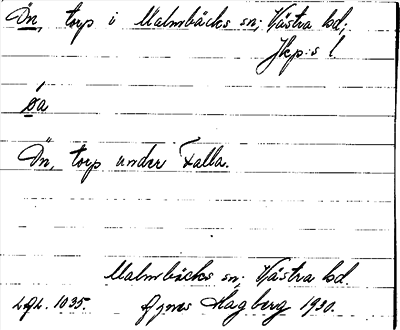 Ön, torp i Malmbäcks sn; Västra hd;
Jkp:s l
öa
Ön, torp under Falla.
Malmbäcks sn; Västra hd.
1035. Agnes Hagberg 1930.